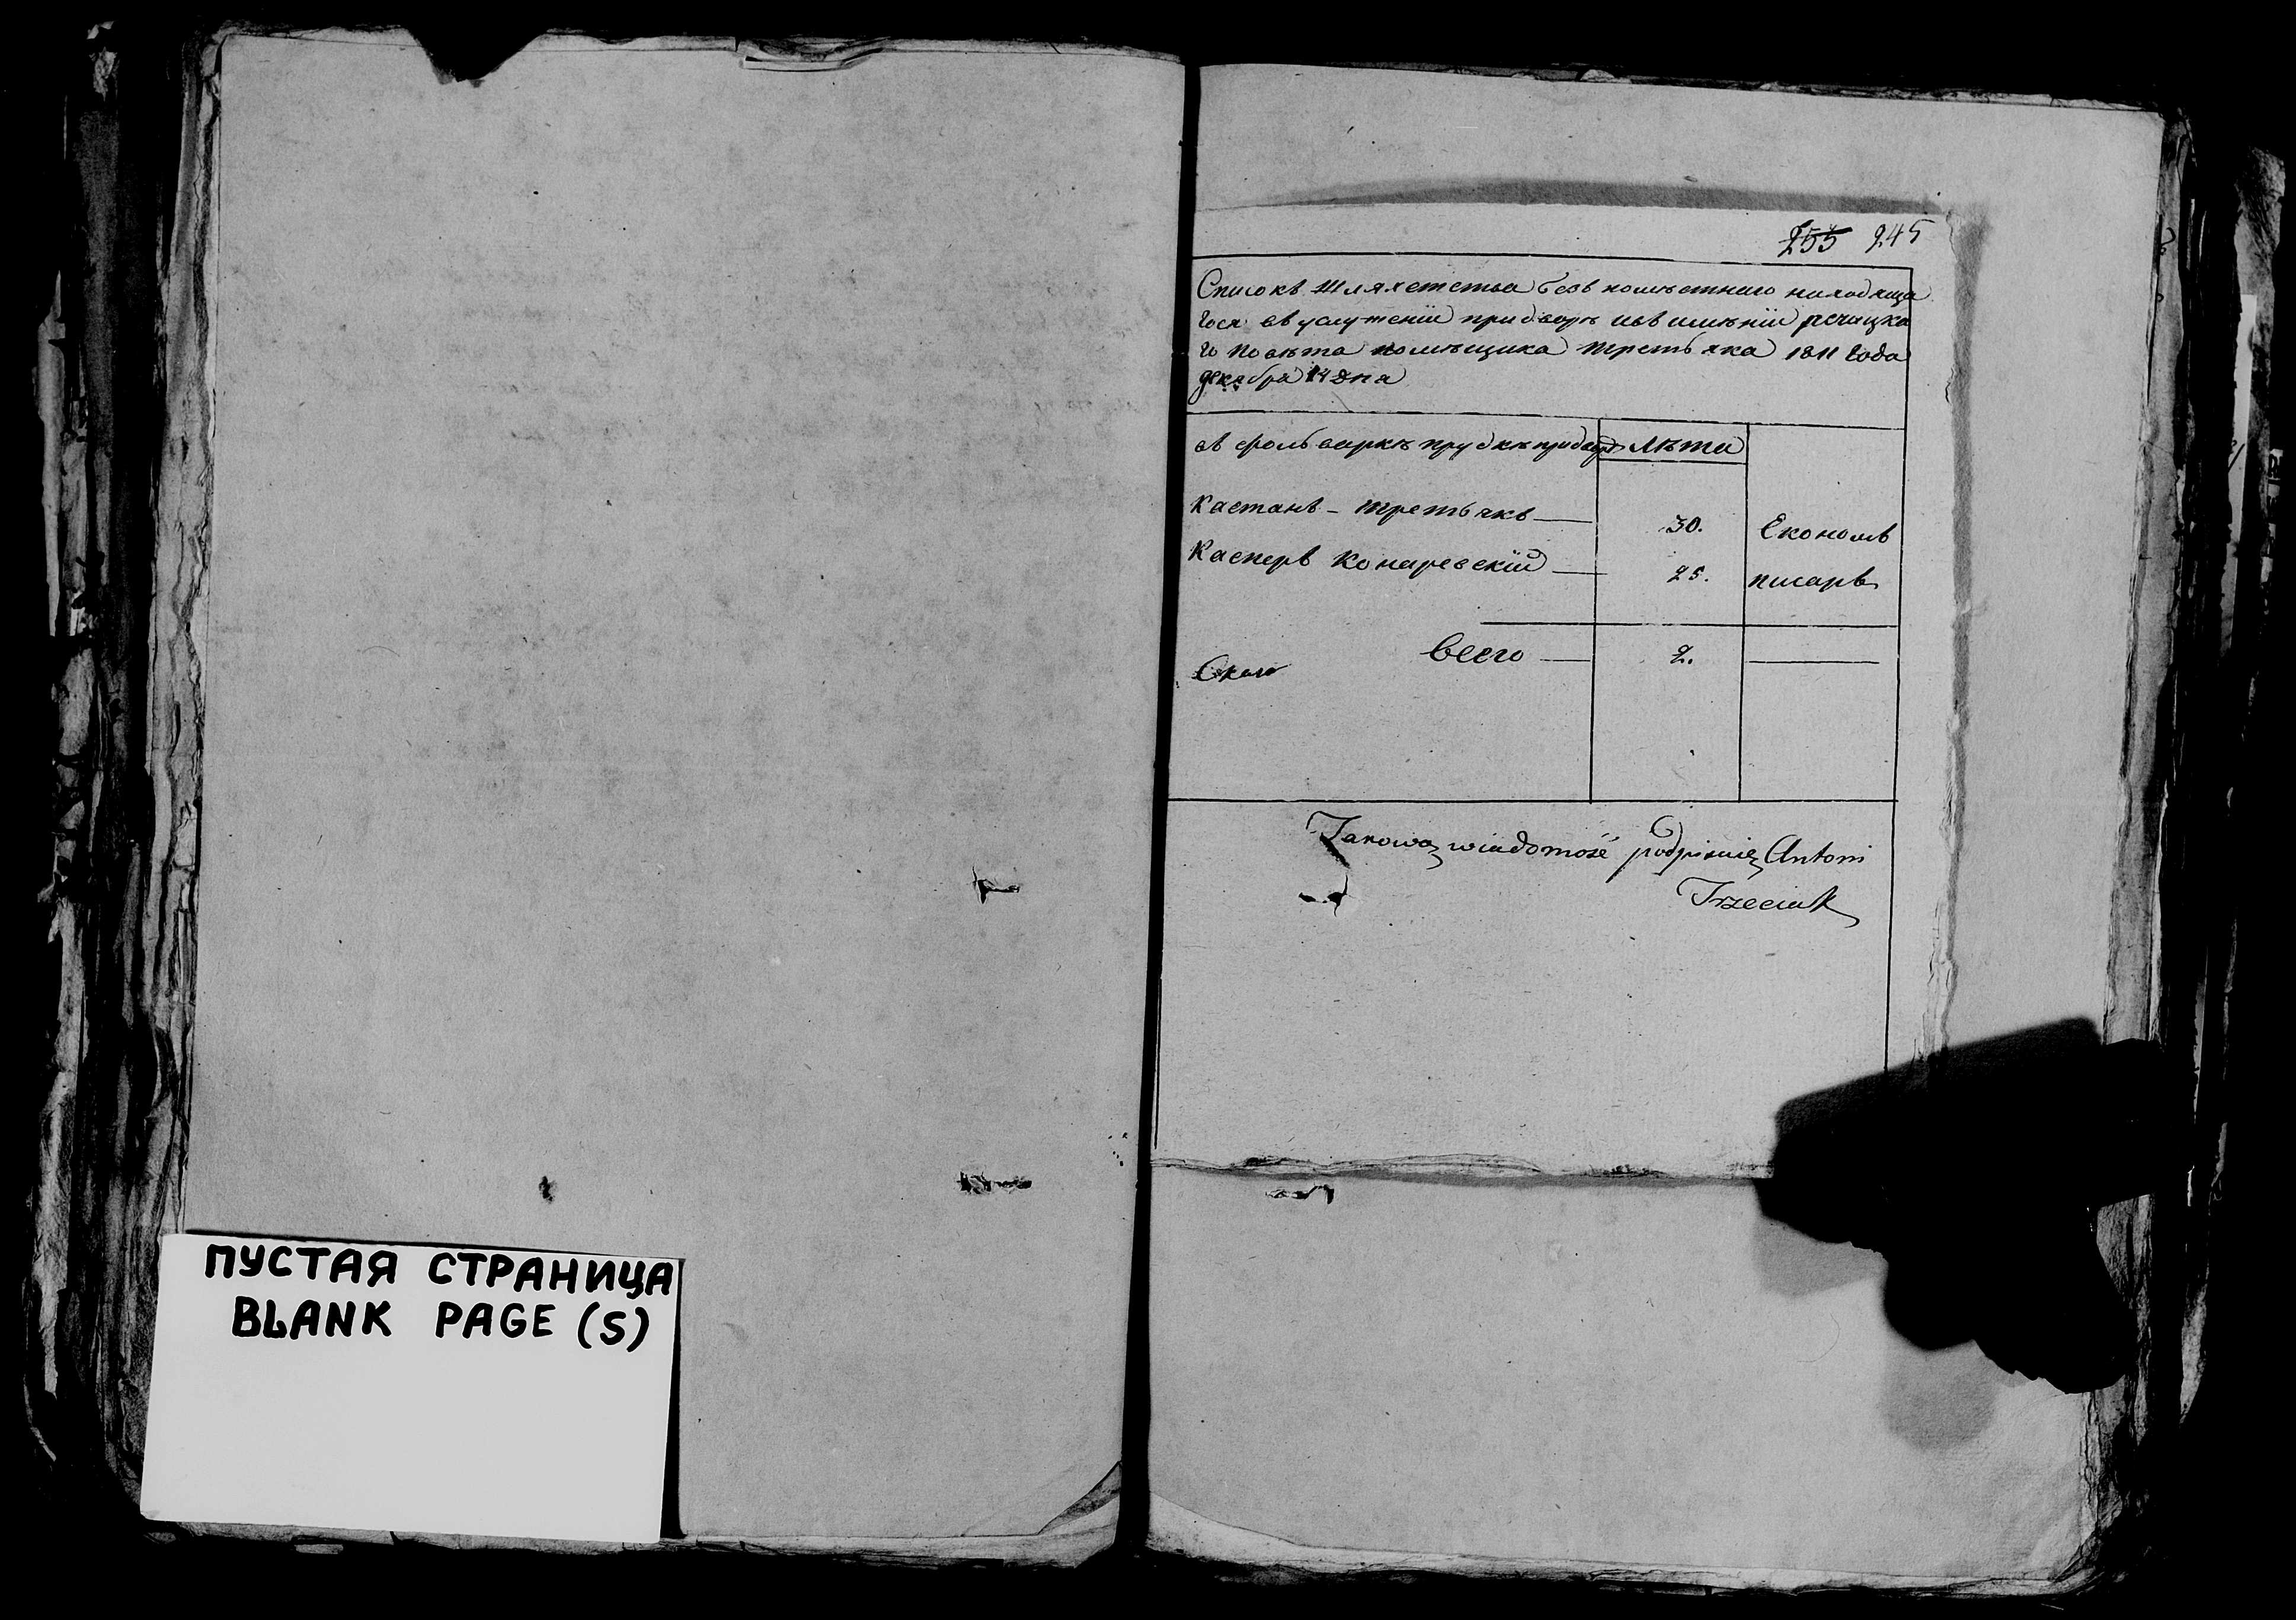 ПУСТАЯ СТРАНИЦА
BLANK PAGE (S)
255 245
Списокъ шляхетства безъ поместнаго находяща
гося въ услуженіи при дворѣ ивъ имѣніи речицка
го повѣта помѣщика третьяка 1811 Года
декабря 14 дня
въ фольваркѣ прудкѣ при дворѣ лѣта
Кастанъ - третьякъ 30. Економъ
Касперъ Комаревскій 25. писаръ
всего 2.
Takową wiadomość podpisuię Antoni
Trzeciak